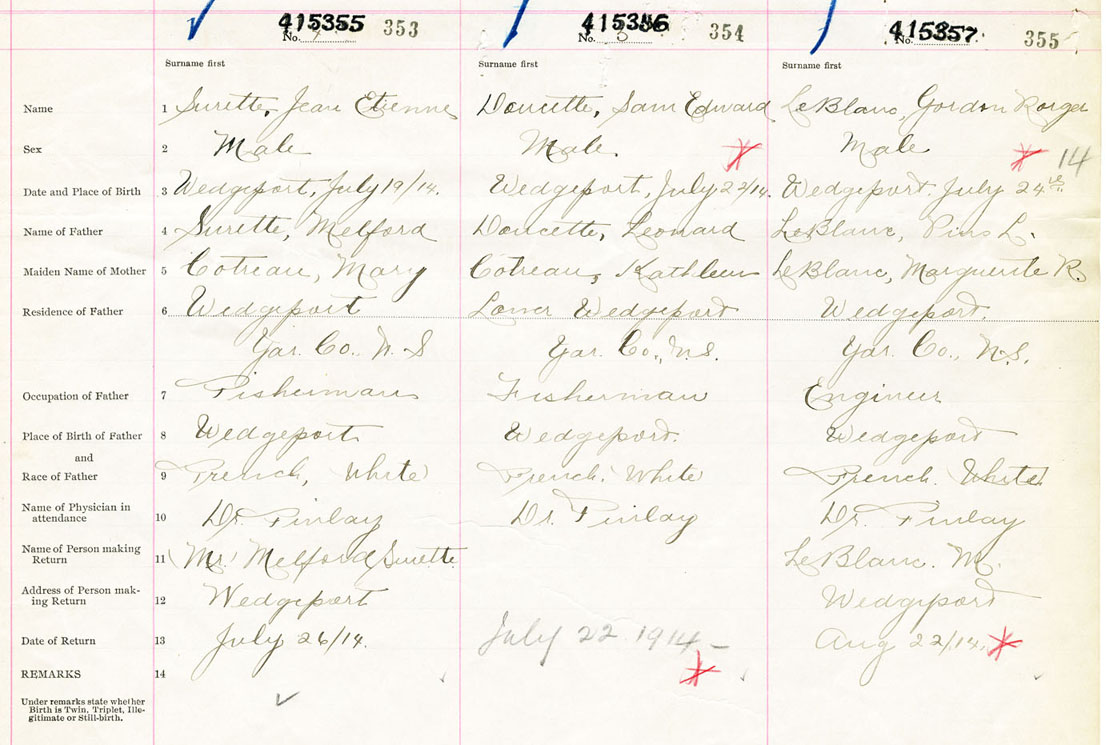 415355 353 415356 354 415357 355
No. No. 5 No.
Surname first Surname first Surname first
Name 1 Surette, Jean Etienne Doucette, Sam Edward LeBlanc, Gordon
Sex 2 Male Male. Male 14
Date and Place of Birth 3 Wedgeport, July 19/14. Wedgeport, July 22/14. Wedgeport. July 24th
Name of Father 4 Surette, Melford Doucette, Leonard LeBlanc, Pius L.
Maiden Name of Mother 5 Cotreau, Mary Cotreau, Kathleen LeBlanc, Marguerite R.
Residence of Father 6 Wedgeport Lower Wedgeport Wedgeport.
Yar. Co., N.S Yar. Co., N.S. Yar. Co., N.S.
Occupation of Father 7 Fisherman Fisherman Engineer
Place of Birth of Father 8 Wedgeport Wedgeport. Wedgeport
and
Race of Father 9 French, White French. White French. White
Name of Physician in
attendance 10 Dr. Finlay Dr. Finlay Dr. Finlay
Name of Person making
Return 11 (Mr.) Melford Surette LeBlanc. M.
Address of Person mak-
ing Return 12 Wedgeport Wedgeport
Date of Return 13 July 26/14. July 22 1914 – Aug 22/14.
REMARKS 14
Under remarks state whether
Birth is Twin, Triplet, Ille-
gitimate or Still-birth.